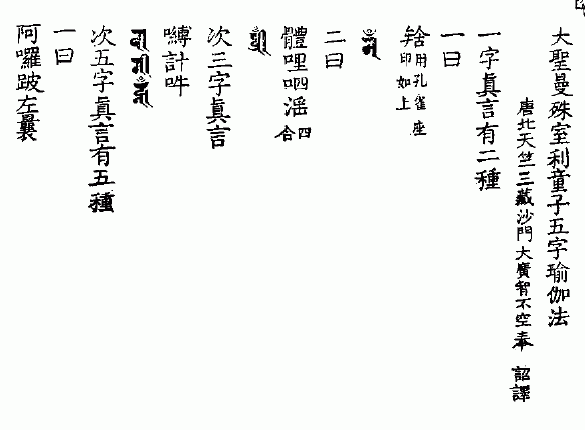 大聖曼殊室利童子五字瑜伽法
唐北天竺三藏沙門大廣智不空奉 詔譯
一字眞言有二種
一曰
用孔雀座印如上
二曰
體哩呬滛四合
次三字眞言
嚩計吽
次五字眞言有五種
一曰
阿囉跛左曩